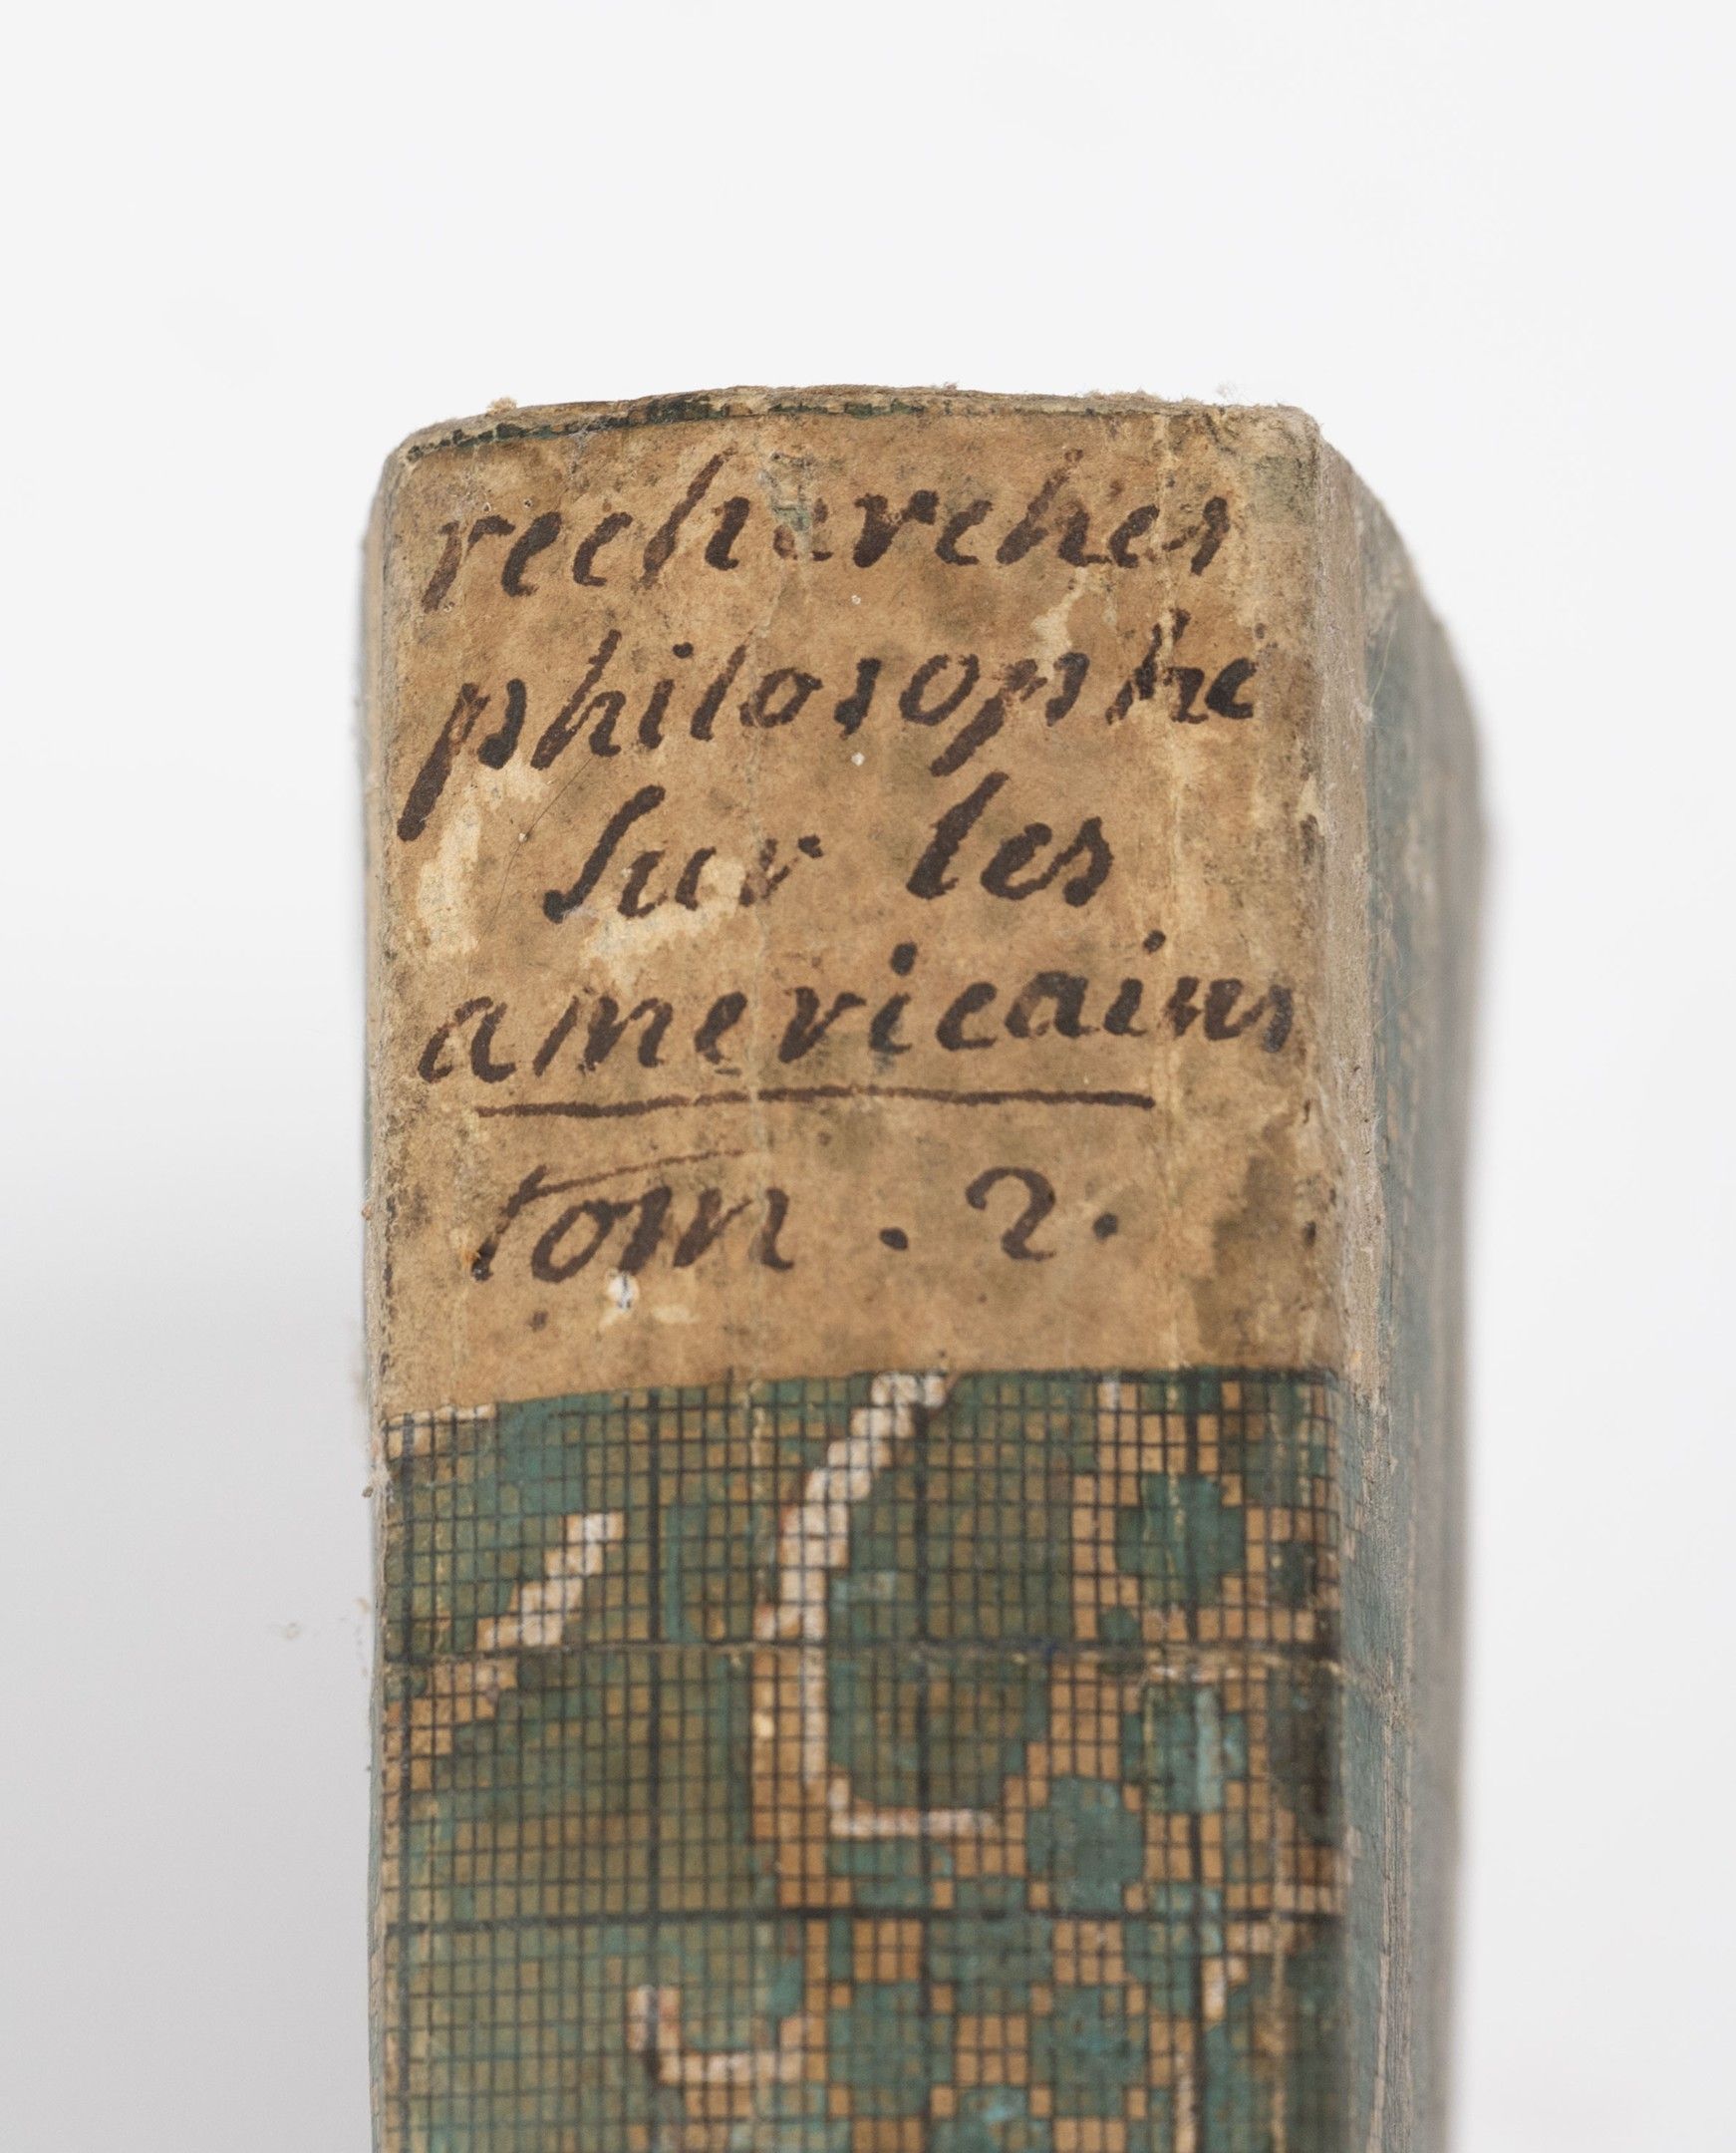 recherches
philosophi
sur les
americains
tom. 2.